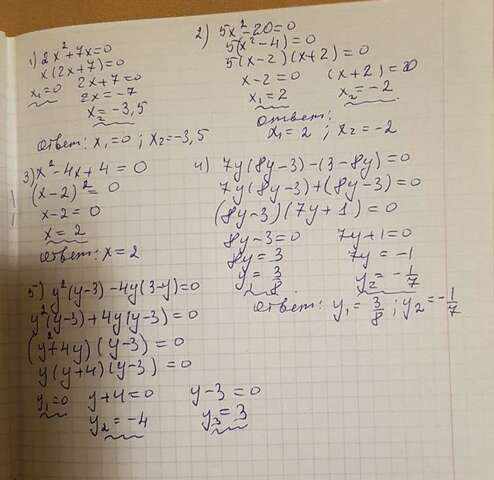 1) 2x²+7x=0
x(2x+7)=0
x₁=0 2x+7=0
2x=-7
x₂=-3,5
Ответ: x₁=0; x₂=-3,5
2) 5x²-20=0
5(x²-4)=0
5(x-2)(x+2)=0
x-2=0 (x+2)=0
x₁=2 x₂=-2
Ответ:
x₁=2; x₂=-2
3) x²-4x+4=0
(x-2)²=0
x-2=0
x=2
Ответ: x=2
4) 7y(8y-3)-(3-8y)=0
7y(8y-3)+(8y-3)=0
(8y-3)(7y+1)=0
8y-3=0 7y+1=0
8y=3 7y=-1
y=3/8 y₂=-1/7
Ответ: y₁=3/8; y₂=-1/7
5) y²(y-3)-4y(3-y)=0
y²(y-3)+4y(y-3)=0
(y²+4y)(y-3)=0
y(y+4)(y-3)=0
y₁=0 y+4=0 y-3=0
y₂=-4 y₃=3